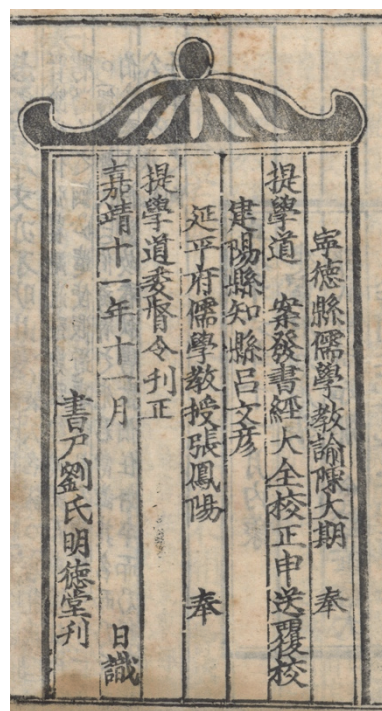 寧德縣儒學教諭陳大期 奉
提學道 案發書經大全校正申送覆校
建陽縣知縣呂文彥
延平府儒學教授張鳳陽 奉
提學道委督令刊正
嘉靖十一年十一月 日識
書戶劉氏明德堂刊